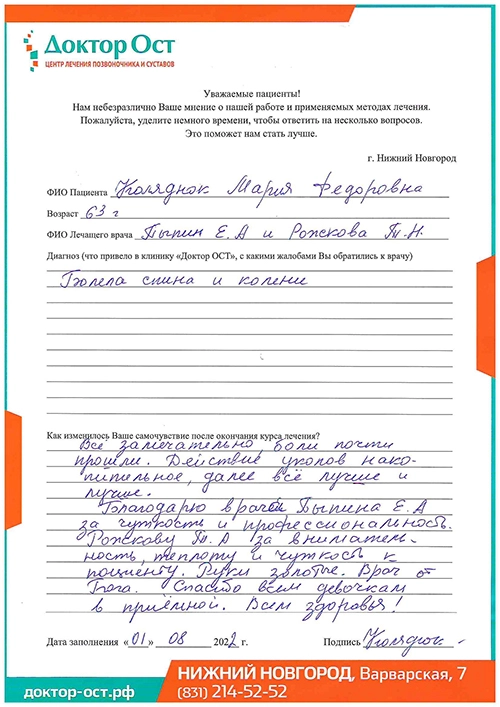 Доктор Ост
ЦЕНТР ЛЕЧЕНИЯ ПОЗВОНОЧНИКА И СУСТАВОВ
Уважаемые пациенты!
Нам небезразлично Ваше мнение о нашей работе и применяемых методах лечения.
Пожалуйста, уделите немного времени, чтобы ответить на несколько вопросов.
Это поможет нам стать лучше.
г. Нижний Новгород
ФИО Пациента Коляднюк Мария Федоровна
Возраст 63 г
ФИО Лечащего врача Тыпин Е.А и Рожскова Т.Н.
Диагноз (что привело в клинику «Доктор ОСТ», с какими жалобами Вы обратились к врачу)
Болела спина и колени
Как изменилось Ваше самочувствие после окончания курса лечения?
Всё замечательно боли почти
прошли. Действие уколов нако-
пительное, далее всё лучше и
лучше.
Благодарю врачей Тыпина Е.А
за чуткость и профессиональность.
Рожскову Т.А за вниматель-
ность, теплоту и чуткость к
пациенту. Руки золотые. Врач от
Бога. Спасибо всем девочкам
в приёмной. Всем здоровья!
Дата заполнения «01» 08 2022 г.
Подпись
доктор-ост.рф
НИЖНИЙ НОВГОРОД, Варварская, 7
(831) 214-52-52